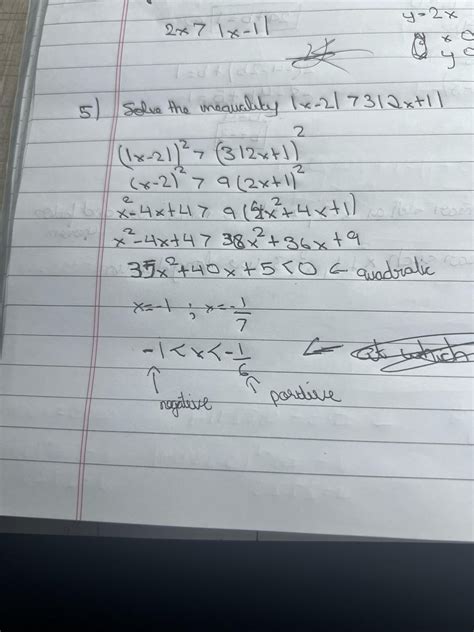 2x > |x-1|
y=2x
x
y
5) Solve the inequality |x-2| > 3|2x+1|
(|x-2|)² > (3|2x+1|)²
(x-2)² > 9(2x+1)²
x²-4x+4 > 9(4x²+4x+1)
x²-4x+4 > 38x²+36x+9
35x²+40x+5<0 ← quadratic
x=-1 ; x=-1/7
-1<x<-1/6 ← at which
negative positive